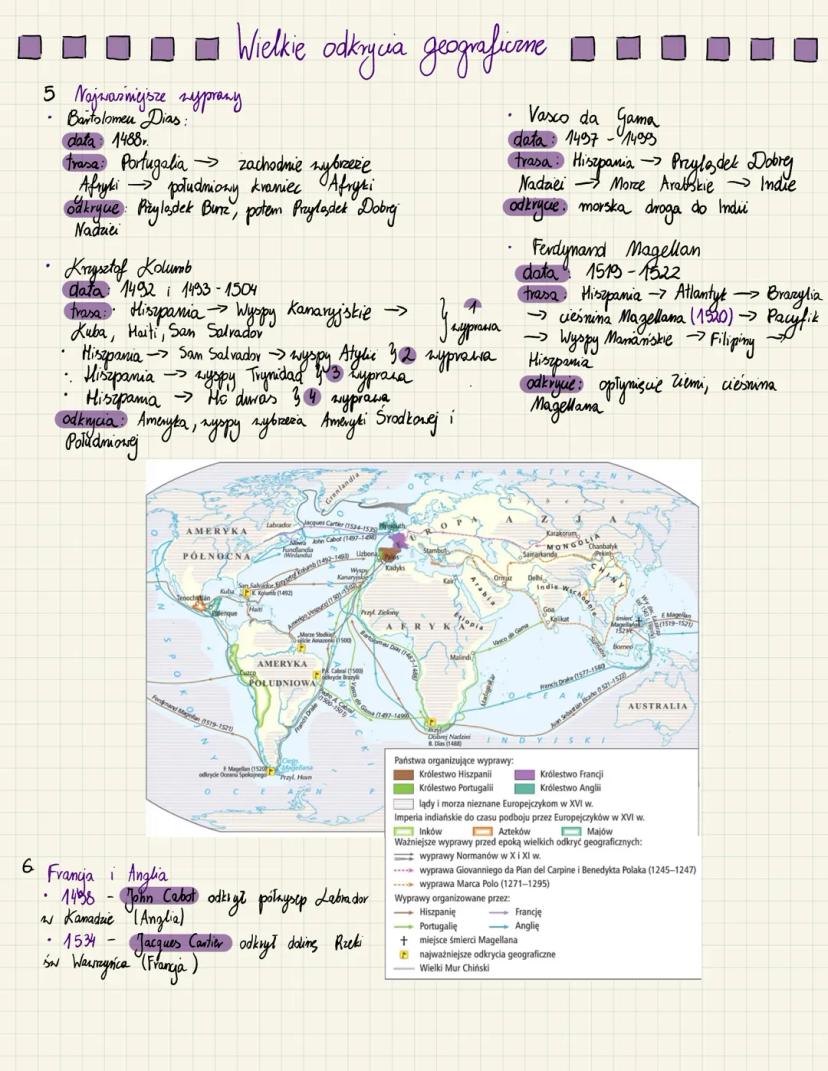 Wielkie odkrycia geograficzne
5 Najważniejsze wyprawy
• Bartolomeu Dias:
data: 1488r.
trasa: Portugalia → zachodnie wybrzeże
Afryki → południowy kraniec Afryki
odkrycie: Przylądek Burz, potem Przylądek Dobrej
Nadziei
• Krzysztof Kolumb
data: 1492 i 1493-1504
trasa: • Hiszpania → Wyspy Kanaryjskie →
Kuba, Haiti, San Salvador } 1 wyprawa
• Hiszpania → San Salvador → wyspy Atylie } 2 wyprawa
• Hiszpania → wyspy Trynidad } 3 wyprawa
• Hiszpania → Honduras } 4 wyprawa
odkrycia: Ameryka, wyspy wybrzeża Ameryki Środkowej i
Południowej
• Vasco da Gama
data: 1497 - 1499
trasa: Hiszpania → Przylądek Dobrej
Nadziei → Morze Arabskie → Indie
odkrycie: morska droga do Indii
• Ferdynand Magellan
data: 1519 - 1522
trasa: Hiszpania → Atlantyk → Brazylia
→ cieśnina Magellana (1520) → Pacyfik
→ Wyspy Mariańskie → Filipiny →
Hiszpania
odkrycie: opłynięcie Ziemi, cieśnina
Magellana
OCEAN ARKTYCZNY
Grenlandia
AMERYKA
PÓŁNOCNA
Labrador
Jacques Cartier (1534-1535)
John Cabot (1497-1498)
Nowa
Fundlandia
(Winlandia)
Plymouth
EUROPA
AZJA
Lizbona
Palos
Kadyks
Stambuł
Karakorum
MONGOLIA
Samarkanda
Chanbałyk
(Pekin)
CHINY
Wyspy
Kanaryjskie
San Salvador
Krzysztof Kolumb (1492-1493)
K. Kolumb (1492)
Kuba
Haiti
Tenochtitlán
Palenque
Amerigo Vespucci (1501-1502)
Kair
Arabia
Ormuz
Delhi
Indie Wschodnie
Goa
Kalikat
Przyl. Zielony
AFRYKA
Etiopia
Malindi
Madagaskar
Vasco da Gama
Bartolomeu Dias (1487-1488)
Vasco da Gama (1497-1499)
„Morze Słodkie"
ujście Amazonki (1500)
AMERYKA
POŁUDNIOWA
Cuzco
P.A. Cabral (1500)
odkrycie Brazylii
Pedro A. Cabral
(1500-1501)
Francis Drake
Ferdynand Magellan (1519-1521)
F. Magellan (1520)
odkrycie Oceanu Spokojnego
Cieśn.
Magellana
Przyl. Horn
Przyl.
Dobrej Nadziei
B. Dias (1488)
Francis Drake (1577-1580)
Juan Sebastián Elcano (1521-1522)
śmierć
Magellana
1521 r.
F. Magellan
(1519-1521)
Borneo
Sumatra
AUSTRALIA
OCEAN
INDYJSKI
OCEAN SPOKOJNY
Państwa organizujące wyprawy:
Królestwo Hiszpanii
Królestwo Francji
Królestwo Portugalii
Królestwo Anglii
lądy i morza nieznane Europejczykom w XVI w.
Imperia indiańskie do czasu podboju przez Europejczyków w XVI w.
Inków
Azteków
Majów
Ważniejsze wyprawy przed epoką wielkich odkryć geograficznych:
wyprawy Normanów w X i XI w.
wyprawa Giovanniego da Pian del Carpine i Benedykta Polaka (1245–1247)
wyprawa Marca Polo (1271–1295)
Wyprawy organizowane przez:
Hiszpanię
Francję
Portugalię
Anglię
miejsce śmierci Magellana
najważniejsze odkrycia geograficzne
Wielki Mur Chiński
6 Francja i Anglia
• 1498 - John Cabot odkrył półwysep Labrador
w Kanadzie (Anglia)
• 1534 - Jacques Cartier odkrył dolinę Rzeki
św Wawrzyńca (Francja)